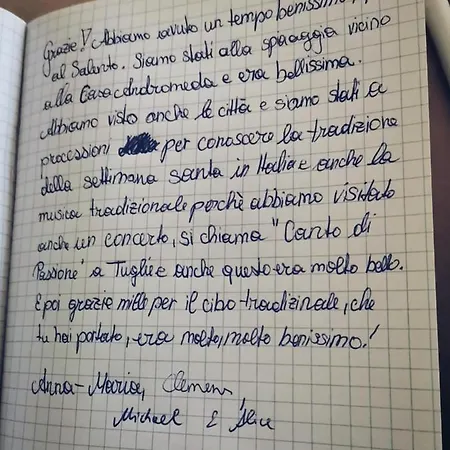 Grazie! Abbiamo avuto un tempo benissimo
al Salento. Siamo stati alla spiaaggia vicino
alla Casa Andromeda e era bellissima.
Abbiamo visto anche le città e siamo stati a
processioni per conoscere la tradizione
della settimana santa in Italia e anche la
musica tradizionale perchè abbiamo visitato
anche un concerto, si chiama "Canto di
Passione" a Tuglie e anche questo era molto bello.
E poi grazie mille per il cibo tradizinale, che
tu hai portato, era molto, molto benissimo!
Anna-Maria, Clemens,
Michael E Alice